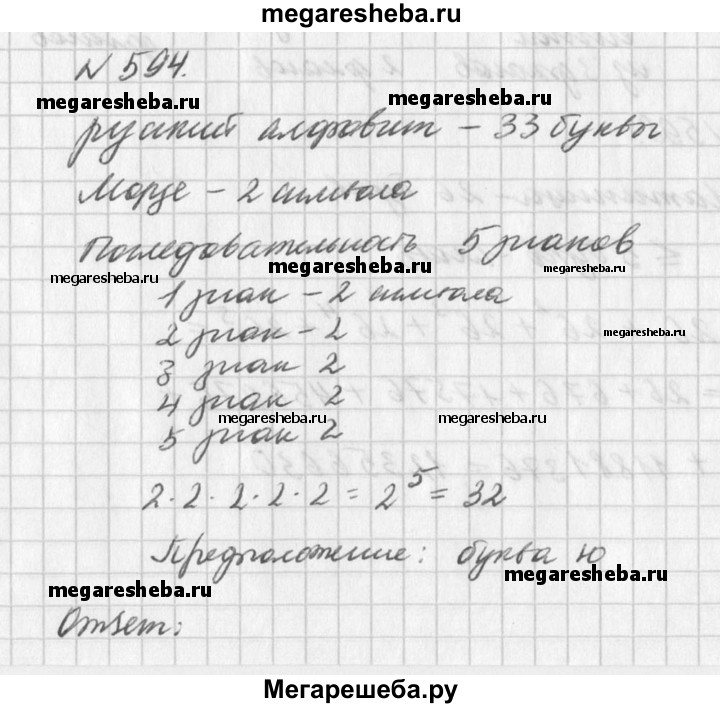 megaresheba.ru
N 594.
megaresheba.ru megaresheba.ru
русский алфавит – 33 буквы
Морзе – 2 символа
Последовательность 5 знаков
megaresheba.ru megaresheba.ru megaresheba.ru
1 знак – 2 символа
2 знак – 2
megaresheba.ru
3 знак 2
4 знак 2
megaresheba.ru megaresheba.ru
5 знак 2
2 · 2 · 2 · 2 · 2 = 2⁵ = 32
Предположение: буква ю
megaresheba.ru megaresheba.ru
Ответ:
Мегарешеба.ру